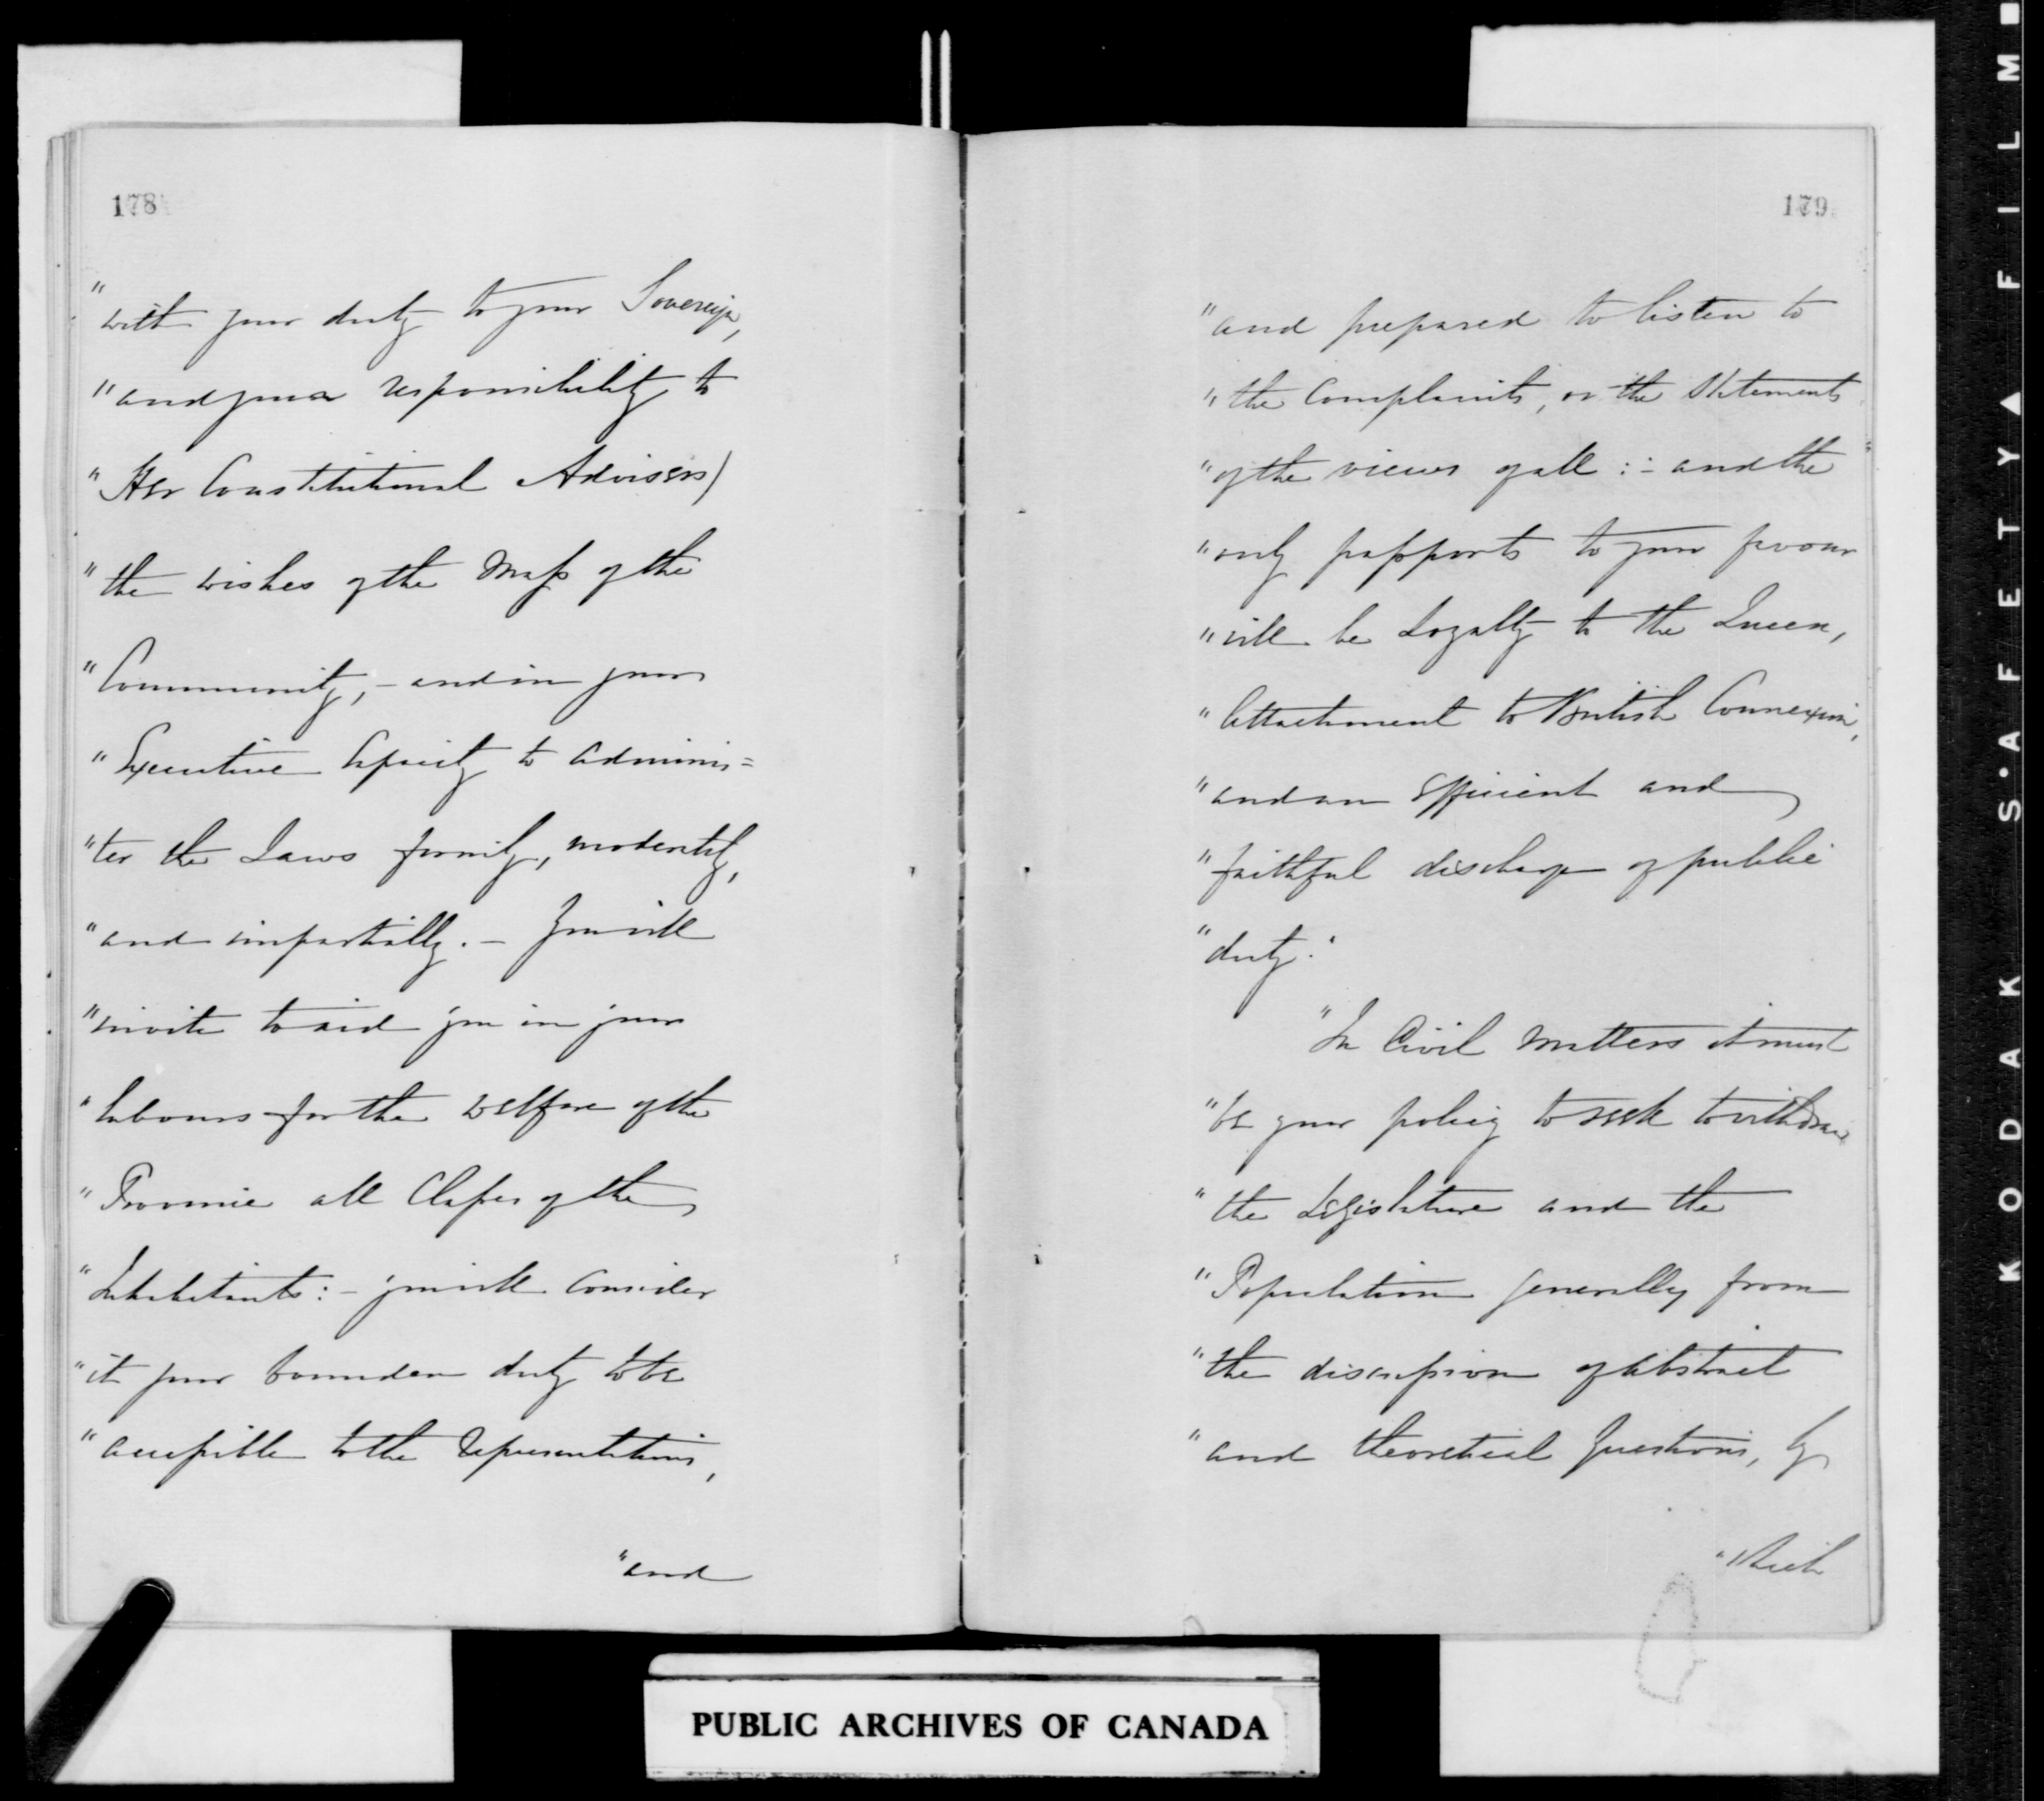 178
"with your duty to your Sovereign,
"and your responsibility to
"Her Constitutional Advisers)
"the wishes of the Mass of the
"Community, - and in your
"Executive Capacity to adminis=
"ter the Laws firmly, moderately,
"and impartially. - You will
"invite to aid you in your
"labours for the welfare of the
"Province all Classes of the
"Inhabitants: - you will consider
"it your bounden duty to be
"accessible to the Representations,
"and
179
"and prepared to listen to
"the Complaints, or the Statements
"of the views of all: - and the
"only passports to your favour
"will be Loyalty to the Queen,
"Attachment to British Connexion,
"and an efficient and
"faithful discharge of public
"duty."
"In Civil Matters it must
"be your policy to seek to withdraw
"the Legislature and the
"Population generally from
"the discussion of abstract
"and theoretical Questions, by
"which
PUBLIC ARCHIVES OF CANADA
KODAK S·AFETY▲FILM■